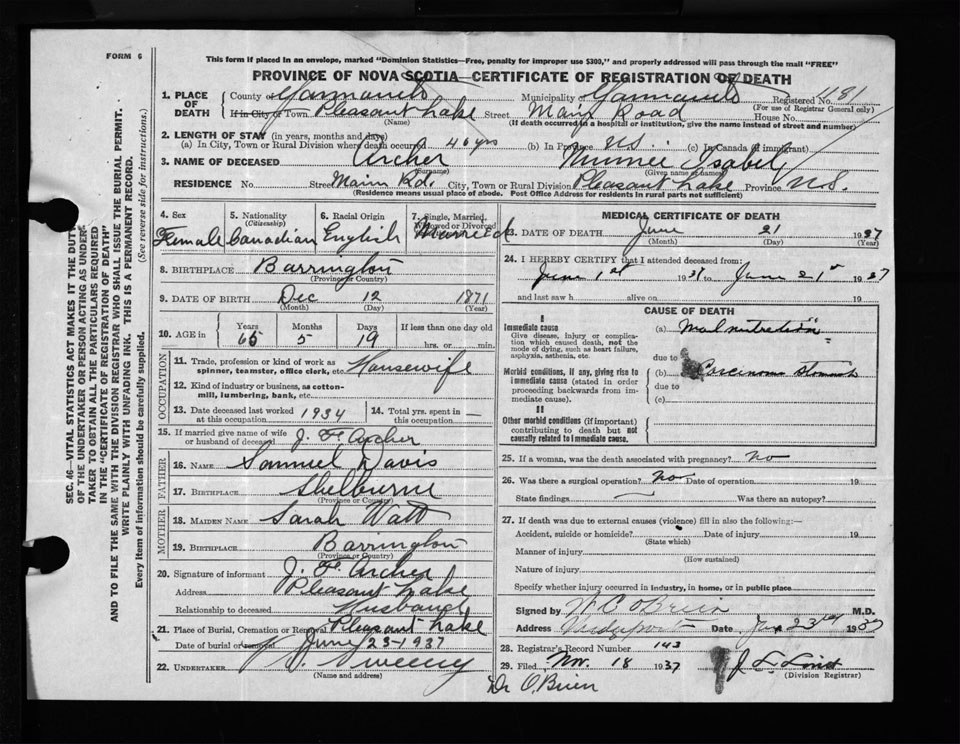 FORM 6
This form if placed in an envelope, marked "Dominion Statistics—Free, penalty for improper use $300," and properly addressed will pass through the mail "FREE"
PROVINCE OF NOVA SCOTIA—CERTIFICATE OF REGISTRATION OF DEATH
SEC. 46—VITAL STATISTICS ACT MAKES IT THE DUTY
OF THE UNDERTAKER OR PERSON ACTING AS UNDER-
TAKER TO OBTAIN ALL THE PARTICULARS REQUIRED
IN THE "CERTIFICATE OF REGISTRATION OF DEATH"
AND TO FILE THE SAME WITH THE DIVISION REGISTRAR WHO SHALL ISSUE THE BURIAL PERMIT.
WRITE PLAINLY WITH UNFADING INK. THIS IS A PERMANENT RECORD.
Every item of information should be carefully supplied. (See reverse side for instructions.)
1. PLACE OF DEATH County of Yarmouth Municipality of Yarmouth Registered No. 481
(For use of Registrar General only)
If in City or Town Pleasant Lake Street Main Road House No.
(Name) (If death occurred in a hospital or institution, give the name instead of street and number)
2. LENGTH OF STAY (in years, months and days)
(a) In City, Town or Rural Division where death occurred 46 yrs (b) In Province N.S. (c) In Canada (if immigrant)
3. NAME OF DECEASED Archer Minnie Isabel
(Given name or names)
RESIDENCE No. Street Main Rd. City, Town or Rural Division Pleasant Lake Province N.S.
(Residence means usual place of abode. Post Office Address for residents in rural parts not sufficient)
4. Sex 5. Nationality (Citizenship) 6. Racial Origin 7. Single, Married, Widowed or Divorced
Female Canadian English Married
8. BIRTHPLACE Barrington
(Province or Country)
9. DATE OF BIRTH Dec 12 1871
(Month) (Day) (Year)
10. AGE in Years Months Days If less than one day old
65 5 19 hrs. or min.
OCCUPATION
11. Trade, profession or kind of work as spinner, teamster, office clerk, etc. Housewife
12. Kind of industry or business, as cotton-mill, lumbering, bank, etc.
13. Date deceased last worked at this occupation 1934 14. Total yrs. spent in this occupation —
15. If married give name of wife or husband of deceased J. F. Archer
FATHER
16. NAME Samuel Davis
17. BIRTHPLACE Shelburne
(Province or Country)
MOTHER
18. MAIDEN NAME Sarah Watt
19. BIRTHPLACE Barrington
(Province or Country)
20. Signature of informant J. F. Archer
Address Pleasant Lake
Relationship to deceased Husband
21. Place of Burial, Cremation or Removal Pleasant Lake
Date of burial or removal June 23-1937
22. UNDERTAKER Sweeny
(Name and address)
MEDICAL CERTIFICATE OF DEATH
23. DATE OF DEATH June 21 1937
(Month) (Day) (Year)
24. I HEREBY CERTIFY that I attended deceased from:
June 1st 1937 to June 21st 1937
and last saw h alive on 19
CAUSE OF DEATH
I
Immediate cause (a) Malnutrition
Give disease, injury or complication which caused death, not the mode of dying, such as heart failure, asphyxia, asthenia, etc. due to
Morbid conditions, if any, giving rise to immediate cause (stated in order proceeding backwards from immediate cause). (b) Carcinoma Stomach
due to
(c)
II
Other morbid conditions (if important) contributing to death but not causally related to immediate cause.
25. If a woman, was the death associated with pregnancy? no
26. Was there a surgical operation? no Date of operation 19
State findings — Was there an autopsy?
27. If death was due to external causes (violence) fill in also the following:—
Accident, suicide or homicide? Date of injury 19
(State which)
Manner of injury
(How sustained)
Nature of injury
Specify whether injury occurred in industry, in home, or in public place
Signed by W C O'Brien M.D.
Address Wedgeport Date 23rd 1937
28. Registrar's Record Number 143
29. Filed Nov. 18 1937
(Division Registrar)
Dr O'Brien